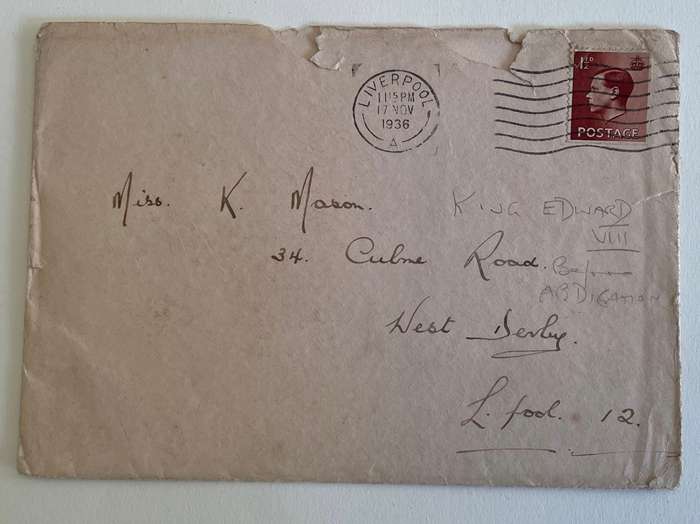 LIVERPOOL
11 15 PM
17 NOV
1936
A
1½D
POSTAGE
Miss. K. Mason.
34. Culme Road.
West Derby.
L. pool. 12.
KING EDWARD
VIII
Before
ABDICATION